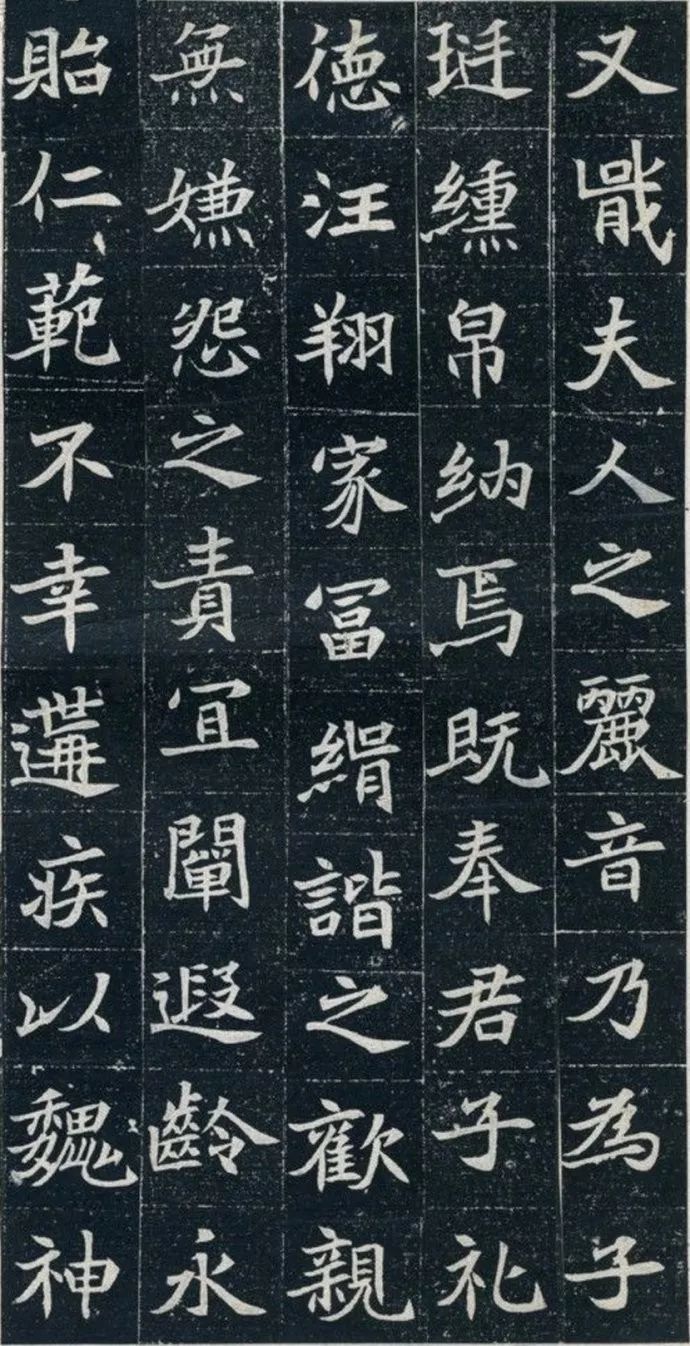 又戢夫人之麗音乃為子
琎纁帛納焉既奉君子礼
德汪翔家冨縎諧之歡親
無嫌怨之責宜闡遐齡永
貽仁範不幸遘疾以魏神